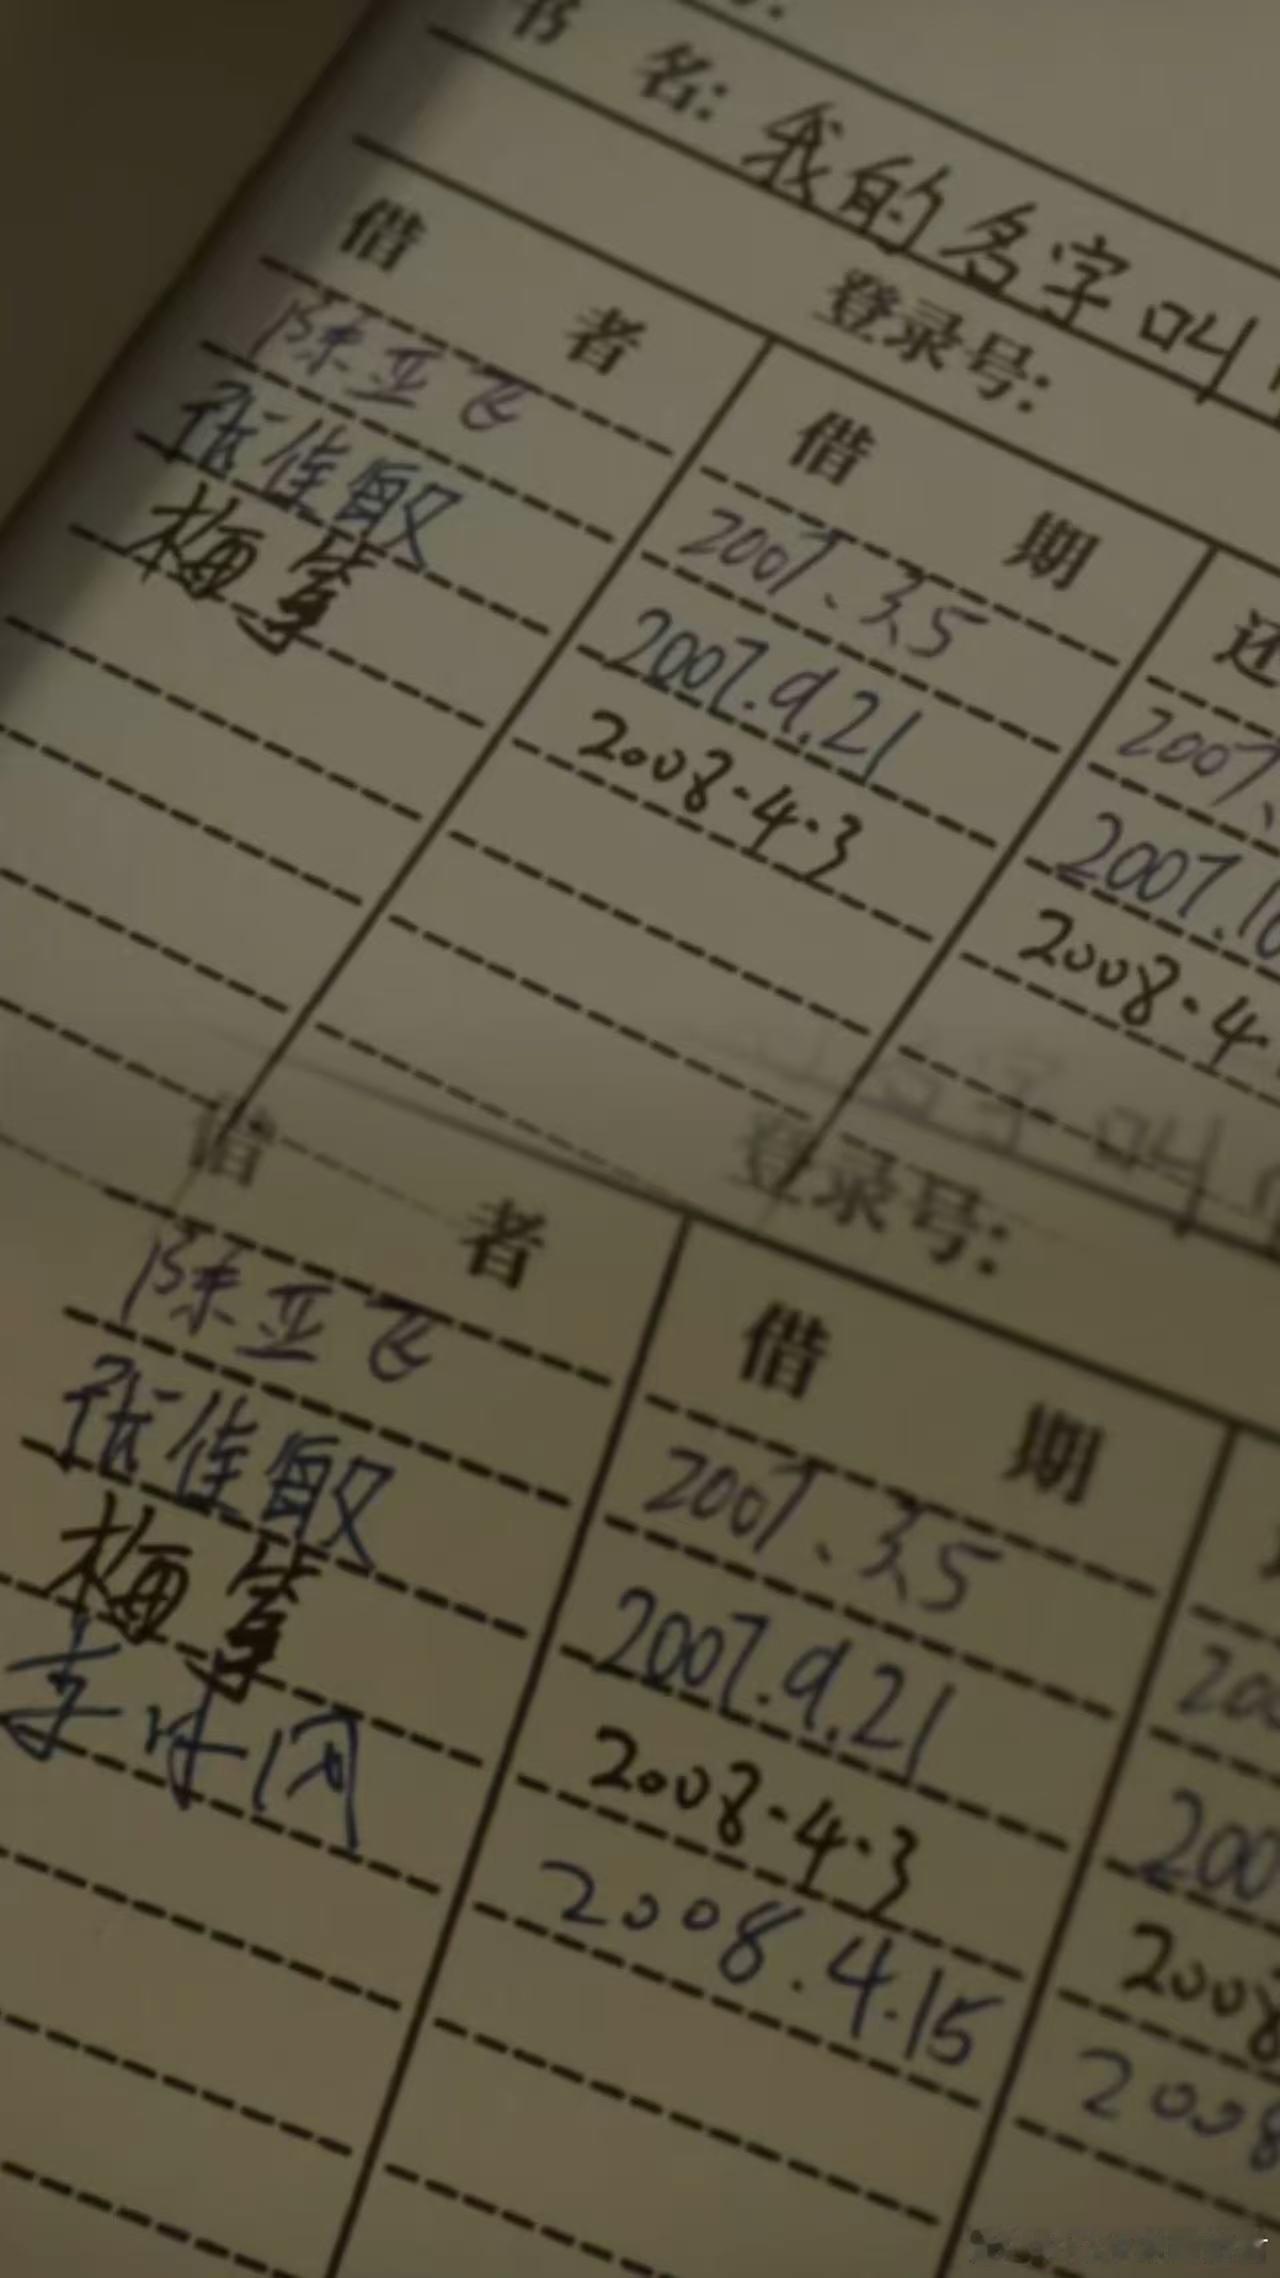 书 名: 我的名字叫
登录号:
借 者 借 期 还
陈亚飞 2007.3.5 2007.
张佳毅 2007.9.21 2007.10
梅 2008.4.3 2008.4.
字叫
登录号:
借 者 借 期
陈亚飞 2007.3.5 200
张佳 2007.9.21 200
梅 2008.4.3 2008
李 2008.4.15 2008